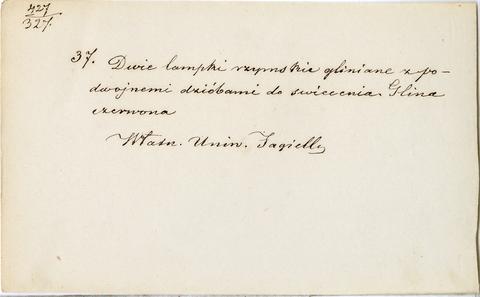 427
327.
37. Dwie lampki rzymskie gliniane z po-
dwojnemi dzióbami do swiecenia. Glina
czerwona
Własn. Uniw. Jagiell.